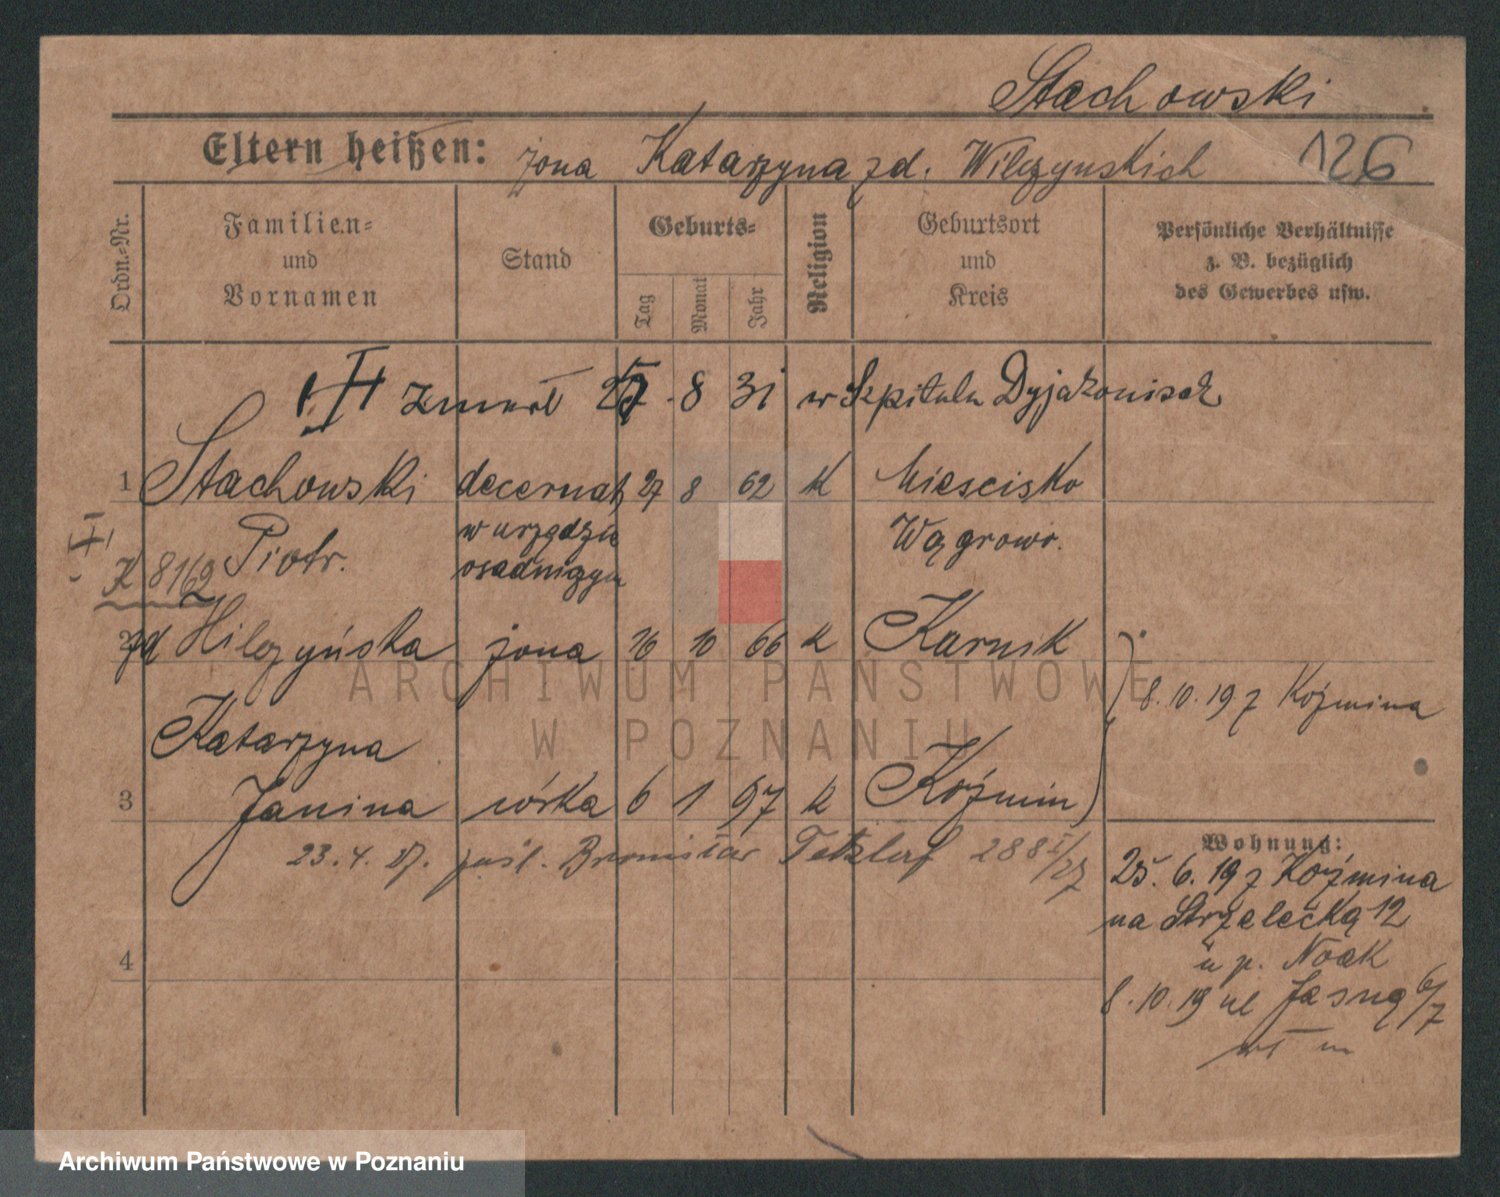 Stachowski
Eltern heißen: żona Katarzyna z d. Wilczyńskich 126
Ordn.-Nr.
Familien-
und
Vornamen
Stand
Geburts-
Tag
Monat
Jahr
Religion
Geburtsort
und
Kreis
Persönliche Verhältnisse
z. B. bezüglich
des Gewerbes usw.
zmarł 8 31 w Szpitalu Dyjakonisek
1 Stachowski decernat 27 8 62 k Miescisko
Piotr. w urzędzie Wągrowr.
8162 osadniczym
2 zd Wilczyńska żona 16 10 66 k Karnik
8.10.19 z Koźmina
Katarzyna
3 Janina córka 6 1 97 k Koźmin
23.4. pośl. Bronisław
Wohnung:
25.6.19 z Koźmina
na Strzelecką 12
u p. Noak
4
8.10.19 ul Jasną 6/7
ARCHIWUM PAŃSTWOWE
W POZNANIU
Archiwum Państwowe w Poznaniu